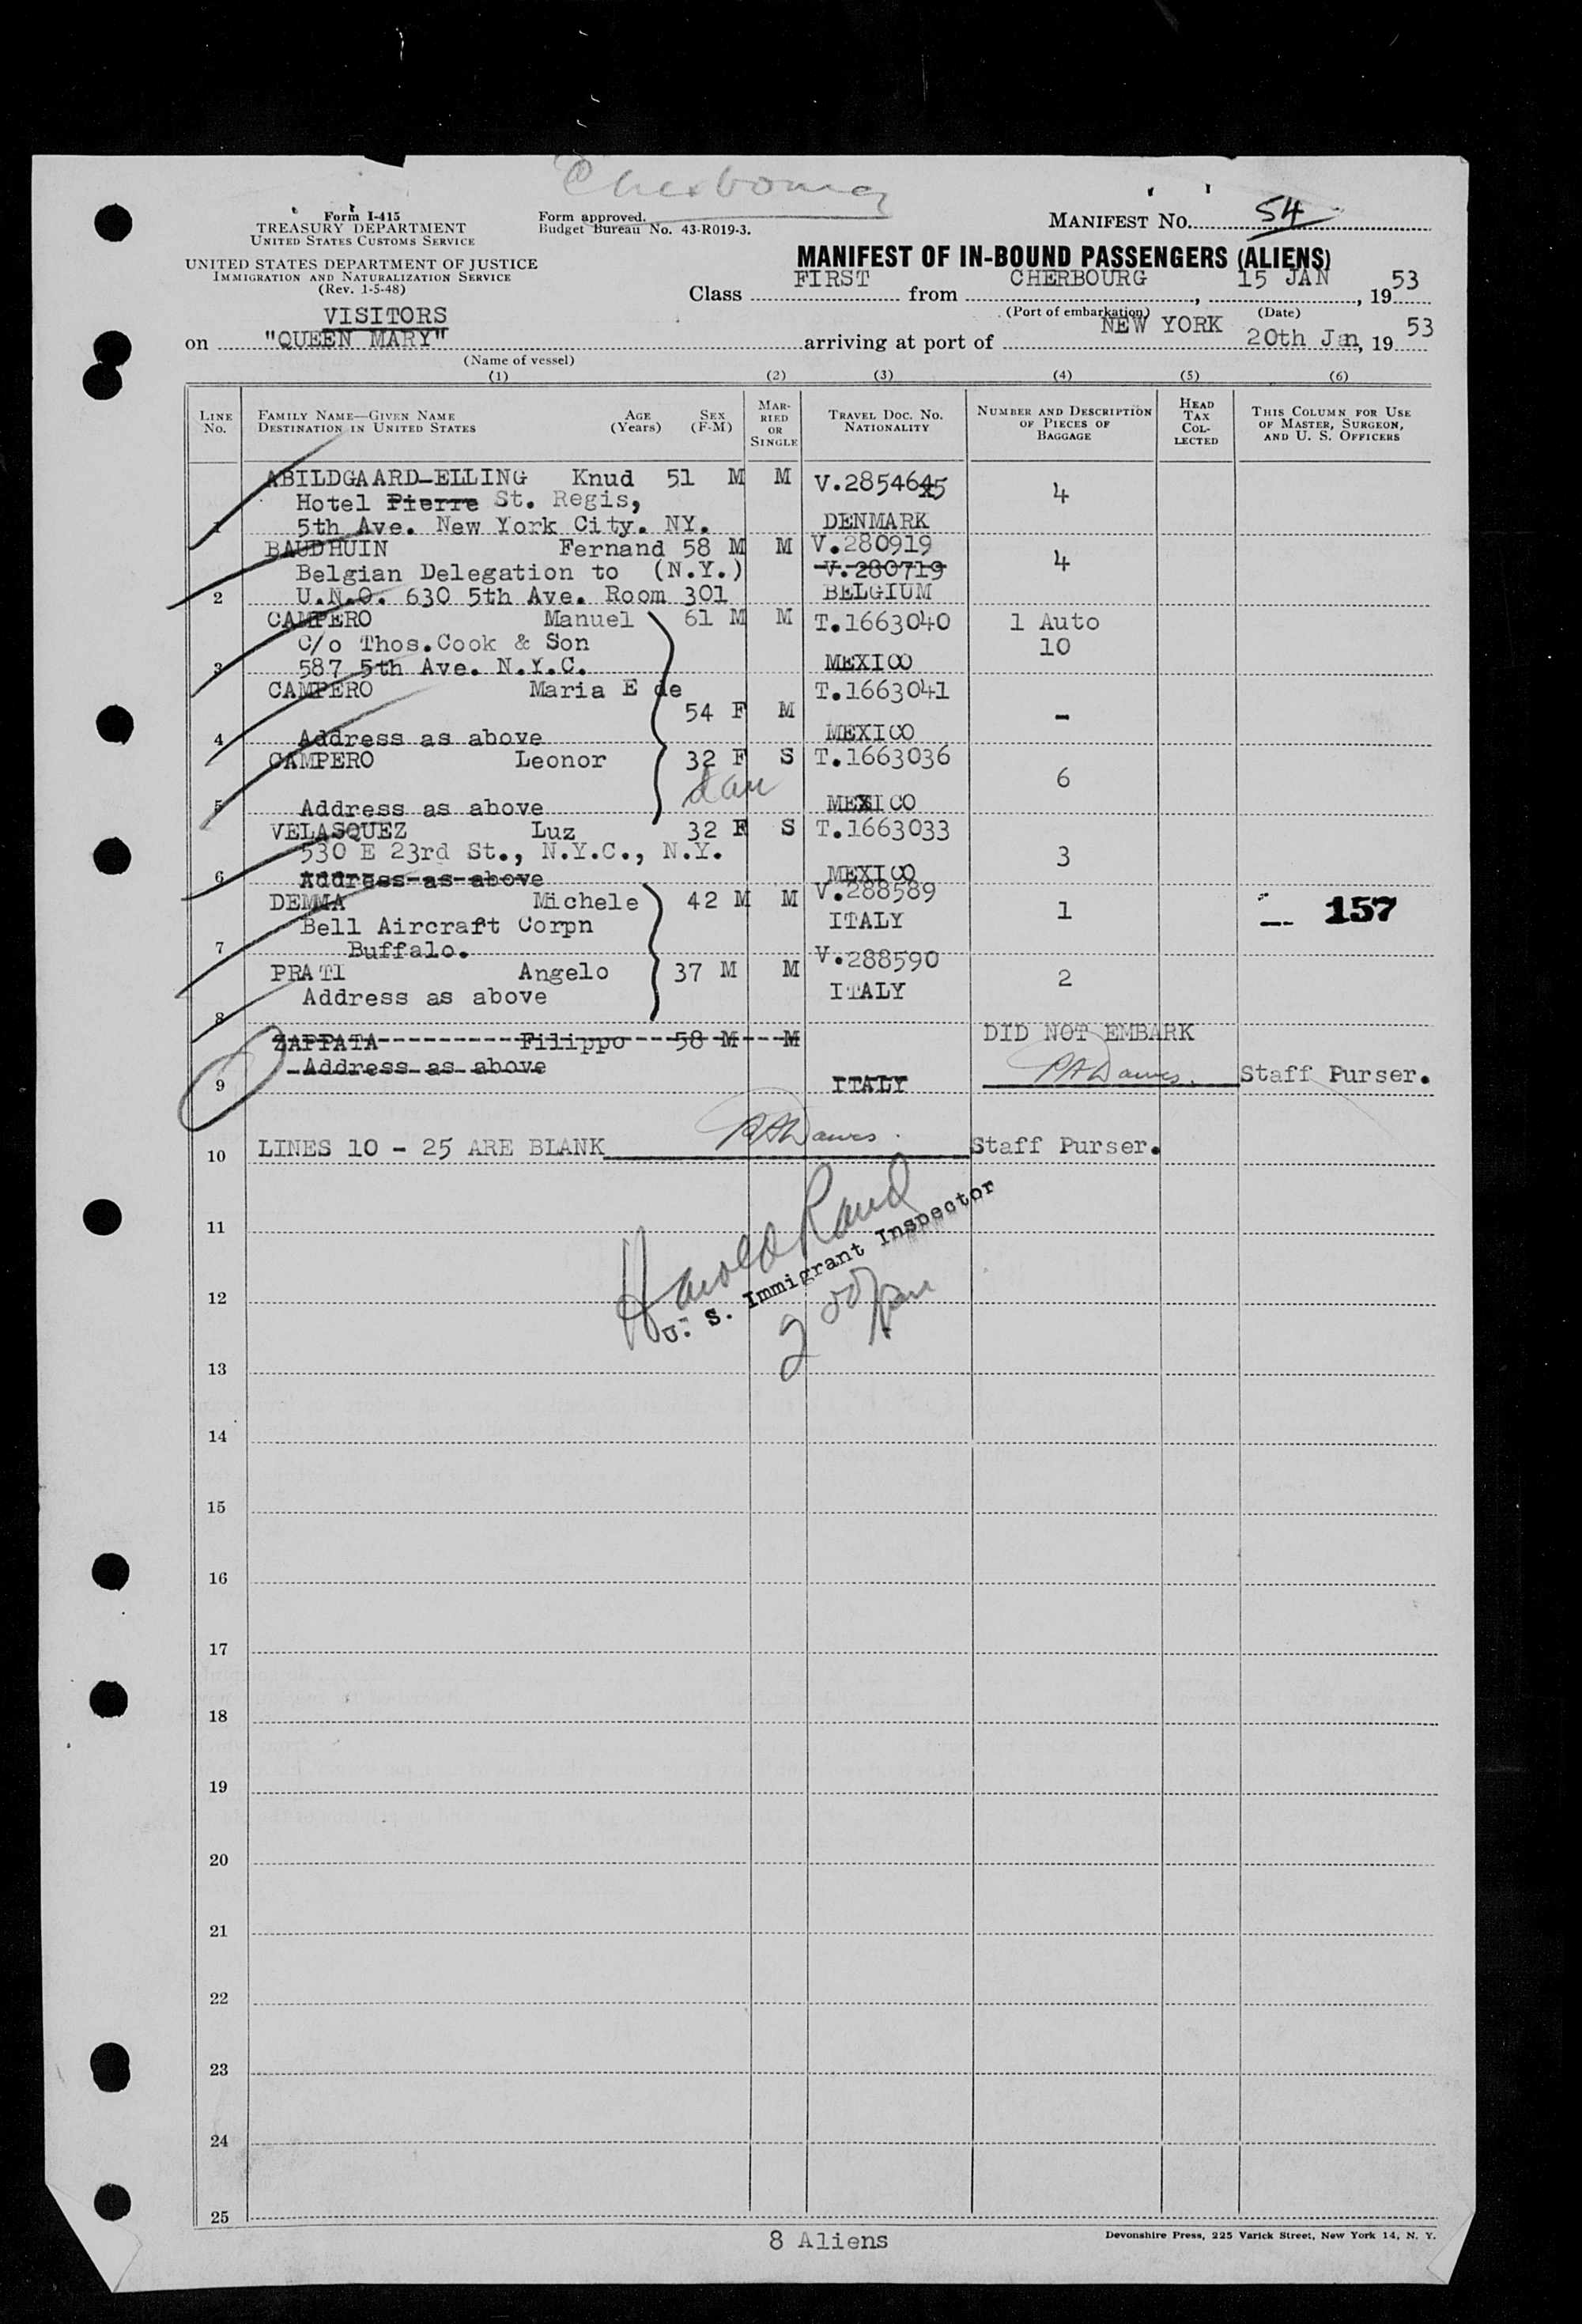 Cherbourg
Form I-415
TREASURY DEPARTMENT
UNITED STATES CUSTOMS SERVICE
Form approved.
Budget Bureau No. 43-R019-3.
MANIFEST NO. 54
UNITED STATES DEPARTMENT OF JUSTICE
IMMIGRATION AND NATURALIZATION SERVICE
(Rev. 1-5-48)
MANIFEST OF IN-BOUND PASSENGERS (ALIENS)
Class FIRST from CHERBOURG, 15 JAN, 1953
(Port of embarkation) (Date)
VISITORS
on "QUEEN MARY" arriving at port of NEW YORK 20th Jan, 1953
(Name of vessel)
(1) (2) (3) (4) (5) (6)
LINE No. FAMILY NAME—GIVEN NAME DESTINATION IN UNITED STATES AGE (Years) SEX (F-M) MARRIED OR SINGLE TRAVEL DOC. NO. NATIONALITY NUMBER AND DESCRIPTION OF PIECES OF BAGGAGE HEAD TAX COLLECTED THIS COLUMN FOR USE OF MASTER, SURGEON, AND U. S. OFFICERS
ABILDGAARD-ELLING Knud 51 M M V.2854645 4
Hotel Pierre St. Regis,
1 5th Ave. New York City. NY. DENMARK
BAUDHUIN Fernand 58 M M V.280919 4
Belgian Delegation to (N.Y.) V.280719
2 U.N.O. 630 5th Ave. Room 301 BELGIUM
CAMPERO Manuel 61 M M T.1663040 1 Auto
C/o Thos.Cook & Son 10
3 587 5th Ave. N.Y.C. MEXICO
CAMPERO Maria E de T.1663041
54 F M -
4 Address as above MEXICO
CAMPERO Leonor 32 F S T.1663036 6
dau
5 Address as above MEXICO
VELASQUEZ Luz 32 F S T.1663033 3
530 E 23rd St., N.Y.C., N.Y.
6 Address as above MEXICO
DEMMA Michele 42 M M V.288589 1 157
Bell Aircraft Corpn ITALY
7 Buffalo.
PRATI Angelo 37 M M V.288590 2
Address as above ITALY
8
ZAPPATA Filippo 58 M M DID NOT EMBARK
Address as above
9 ITALY RADawes. Staff Purser.
10 LINES 10 - 25 ARE BLANK RADawes. Staff Purser.
Harold Rand
U. S. Immigrant Inspector
11
12
13
14
15
16
17
18
19
20
21
22
23
24
25
8 Aliens
Devonshire Press, 225 Varick Street, New York 14, N. Y.